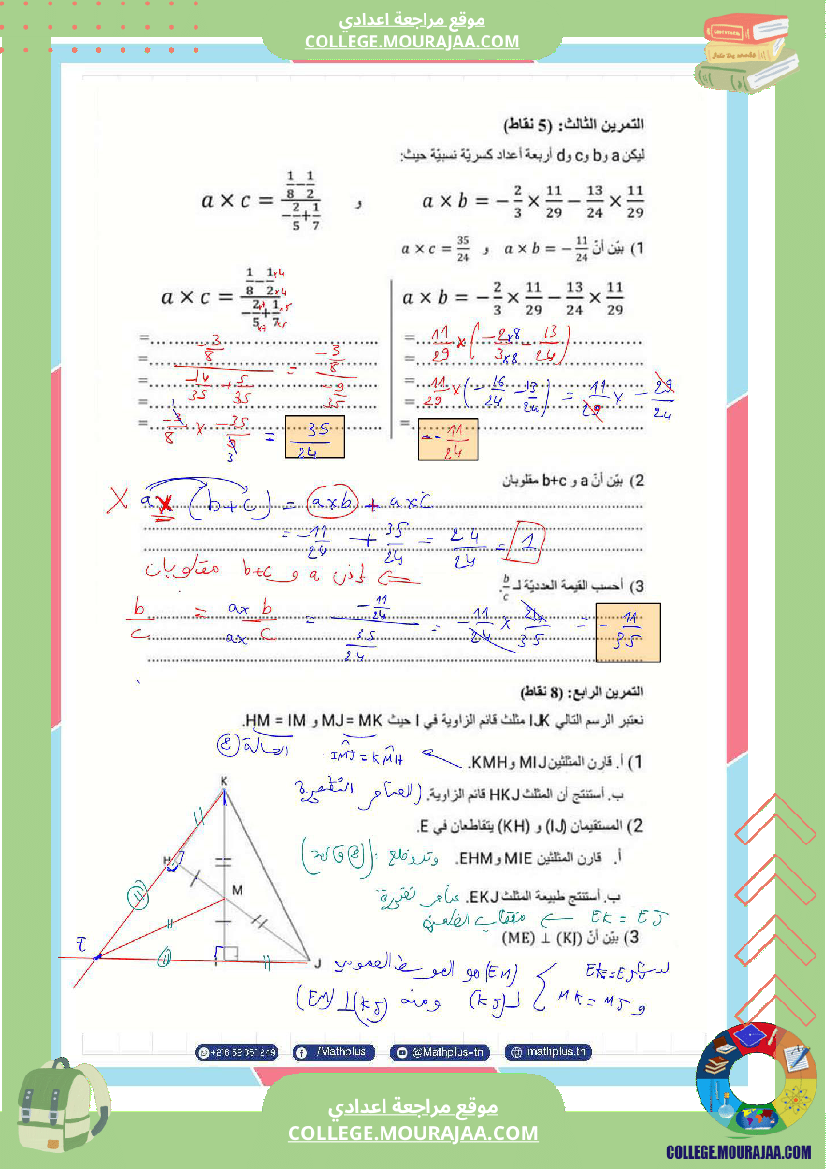 موقع مراجعة اعدادي
COLLEGE.MOURAJAA.COM
التمرين الثالث: (5 نقاط)
ليكن a وb وc وd أربعة أعداد كسريّة نسبيّة حيث:
a × b = −2/3 × 11/29 − 13/24 × 11/29 و a × c = (1/8 − 1/2)/(−2/5 + 1/7)
1) بيّن أنّ a × b = −11/24 و a × c = 35/24
a × b = −2/3 × 11/29 − 13/24 × 11/29
= 11/29 × (−2×8/3×8 − 13/24)
=
= 11/29 × (−16/24 − 13/24) = 11/29 × −29/24
=
= −11/24
a × c = (1/8 − 1×4/2×4)/(−2×7/5×7 + 1×5/7×5)
=
= (−3/8)/(−14/35 + 5/35) = (−3/8)/(−9/35)
=
=
= −3/8 × −35/9 = 35/24
2) بيّن أنّ a و b+c مقلوبان
a × (b+c) = a×b + a×c
= −11/24 + 35/24 = 24/24 = 1
⇐ إذن a و b+c مقلوبان
3) أحسب القيمة العدديّة لـ b/c.
b/c = a× b/a× c = (−11/24)/(35/24) = −11/24 × 24/35 = −11/35
التمرين الرابع: (8 نقاط)
نعتبر الرسم التالي IJK مثلث قائم الزاوية في I حيث MJ= MK و HM = IM.
1) أ. قارن المثلثين MIJ وKMH.
IMJ = KMH الحالة
ب. أستنتج أن المثلث HKJ قائم الزاوية. (العناصر النظيرة
2) المستقيمان (IJ) و (KH) يتقاطعان في E.
أ. قارن المثلثين MIE وEHM. وتر وضلع
ب. أستنتج طبيعة المثلث EKJ. عناصر نظيرة
EK = EJ ← متقايس الضلعين
3) بيّن أنّ (ME) ⊥ (KJ)
لدينا EK=EJ
و MK = MJ
(EM) هو الموسط العمودي
لـ (KJ) ومنه (EM)⊥(KJ)
K
H
M
E
J
+216 52 351 249
/Mathplus
@Mathplus-tn
mathplus.tn
موقع مراجعة اعدادي
COLLEGE.MOURAJAA.COM
COLLEGE.MOURAJAA.COM